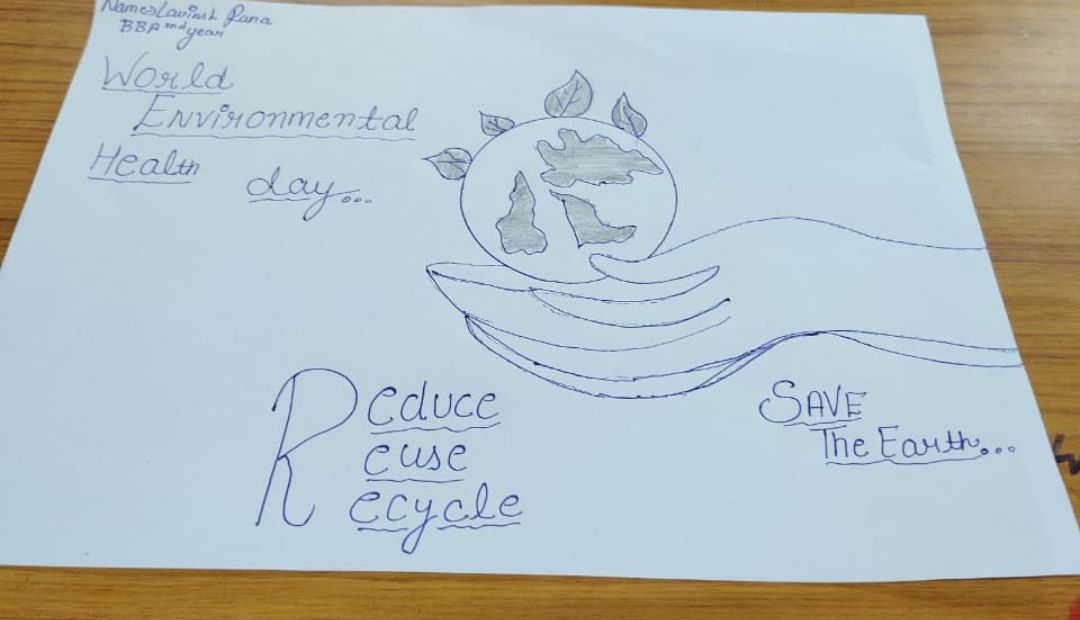 Name→Lavinsh Rana
BBA 2nd year
World
Environmental
Health day...
Reduce
euse
ecycle
SAVE
The Earth...